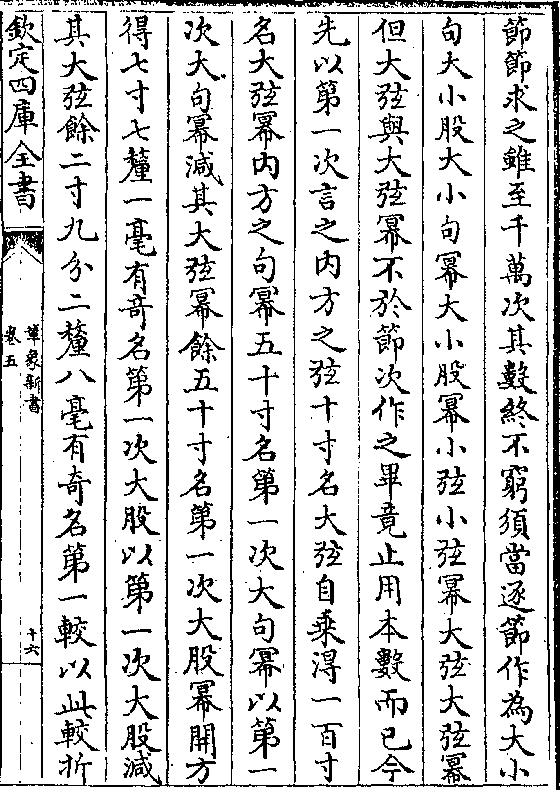 節節求之雖至千萬次其數終不窮須當逐節作為大小
句大小股大小句冪大小股冪小弦小弦冪大弦大弦冪
但大弦與大弦冪不於節次作之畢竟止用本數而已今
先以第一次言之内方之弦十寸名大弦自乘得一百寸
名大弦冪内方之句冪五十寸名第一次大句冪以第一
次大句冪減其大弦冪餘五十寸名第一次大股冪開方
得七寸七釐一毫有奇名第一次大股以第一次大股減
其大弦餘二寸九分二釐八毫有奇名第一較以此較折
欽定四庫全書
革象新書
卷五
十六